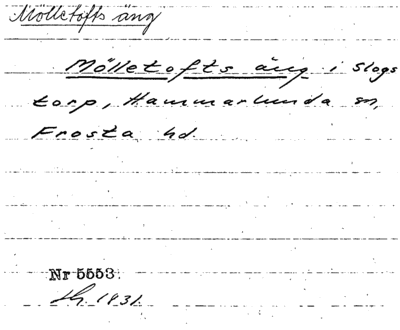 Mölletofts äng
Mölletofts äng i Slogs
torp, Hammarlunda sn,
Frosta hd.
Nr 5553.
1931.